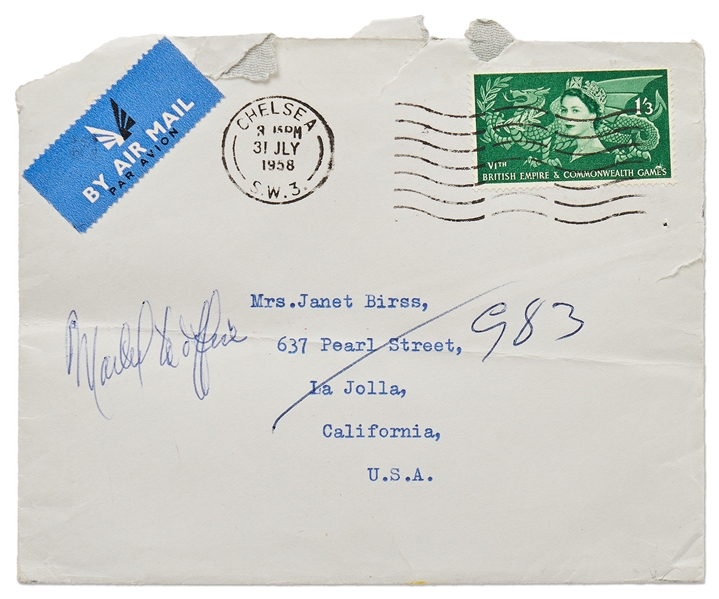 BY AIR MAIL
PAR AVION
CHELSEA
31 JLY
1958
S.W.3.
1'3
VITH
BRITISH EMPIRE & COMMONWEALTH GAMES
Mrs.Janet Birss,
637 Pearl Street,
983
La Jolla,
California,
U.S.A.